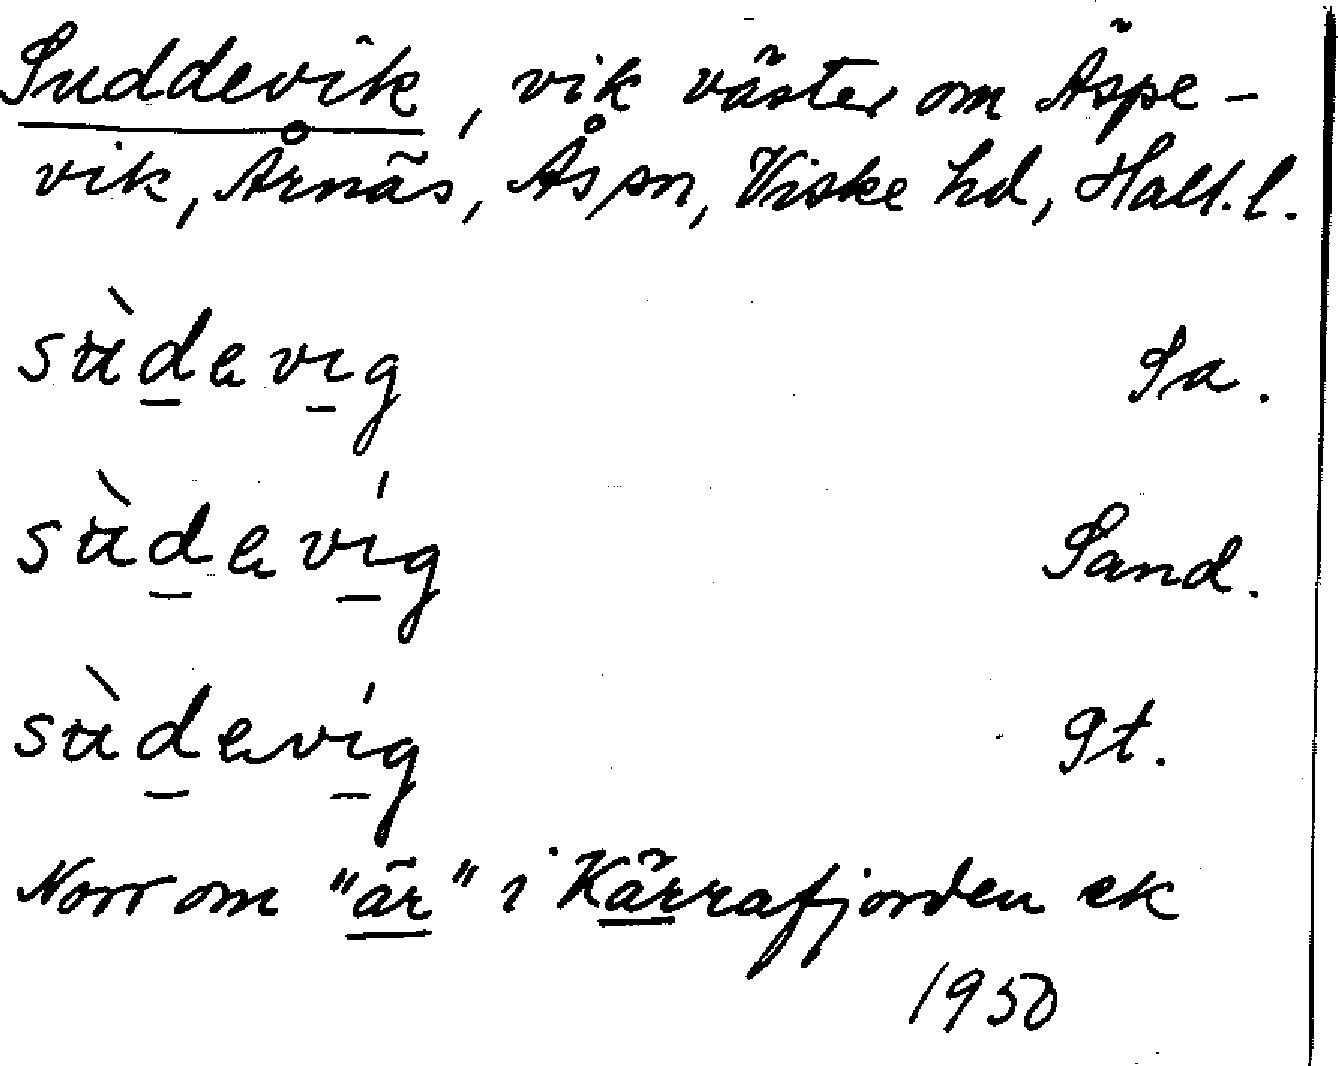 Suddevik, vik väster om Äspe-
vik, Årnäs, Ås sn, Viske hd, Hall.l.
sùdevig Sa.
sùdevíg Sand.
sùdevíg St.
Norr om "är" i Kärrafjorden ek
1950